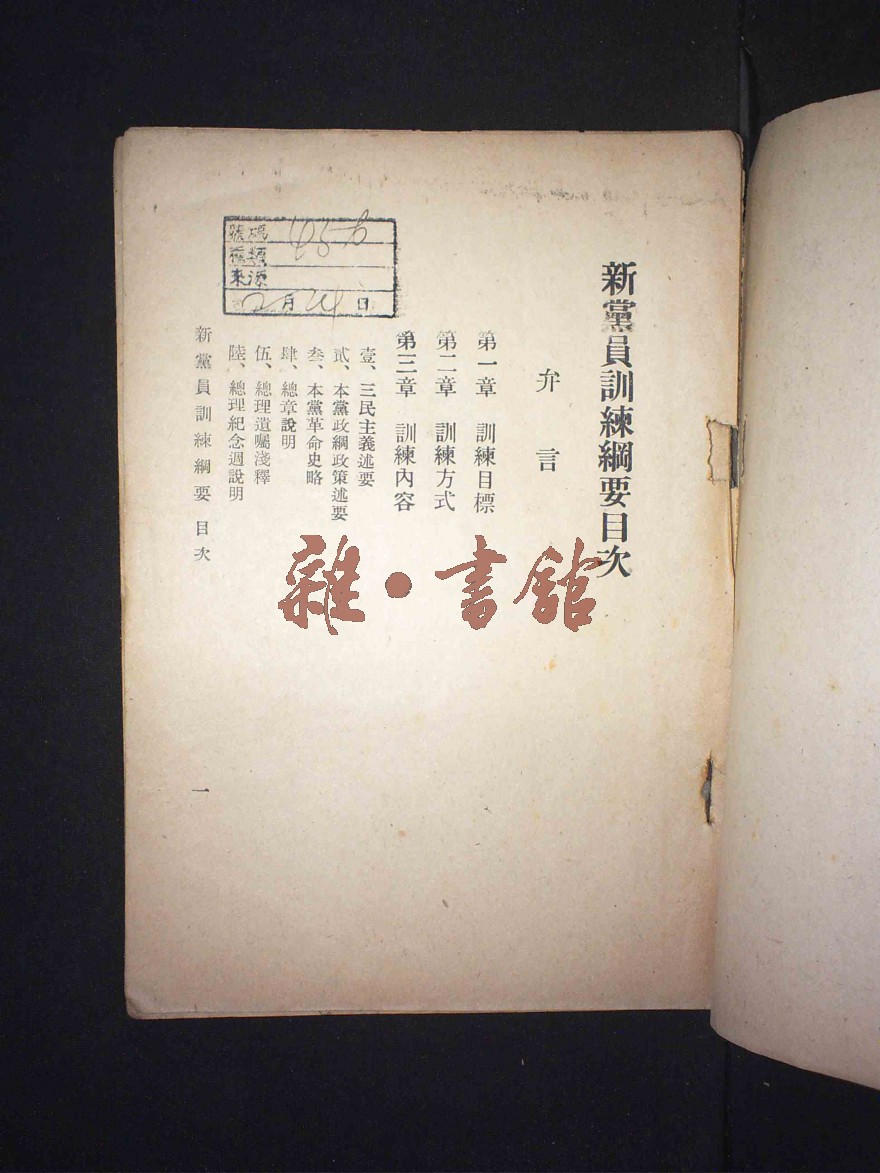 新黨員訓練綱要目次
弁言
第一章 訓練目標
第二章 訓練方式
第三章 訓練內容
壹、三民主義述要
貳、本黨政綱政策述要
叁、本黨革命史略
肆、總章說明
伍、總理遺囑淺釋
陸、總理紀念週說明
新黨員訓練綱要 目次
一
號碼 456
種類
來源
2月24日
雜·書館